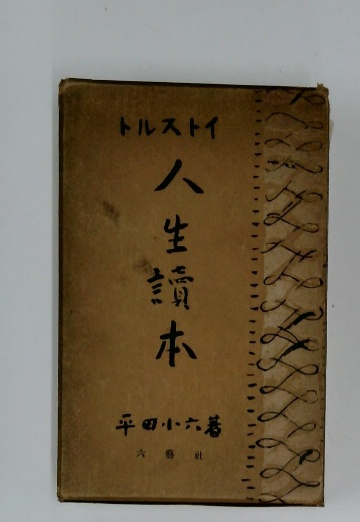 トルストイ
人生讀本
平田小六著
六藝社